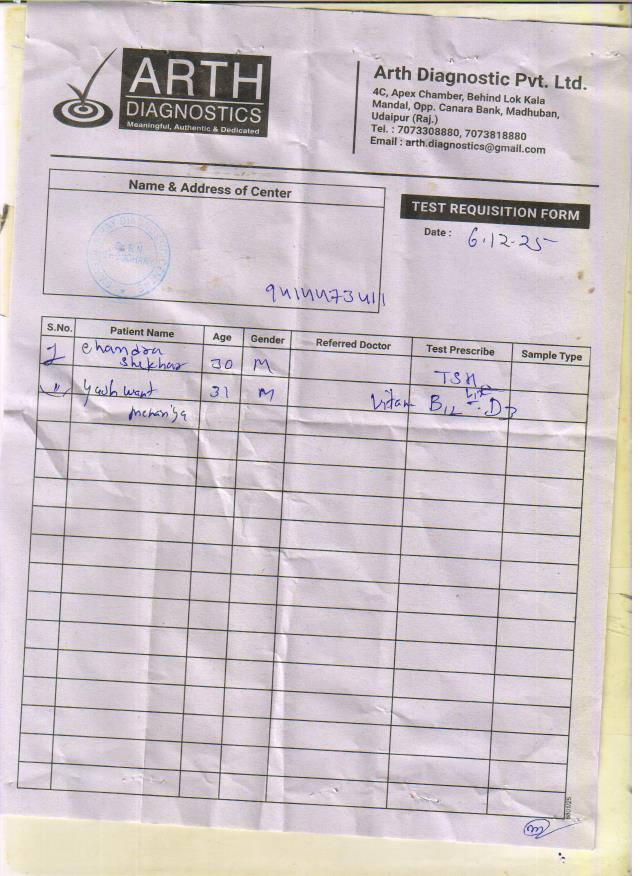 ARTH
DIAGNOSTICS
Meaningful, Authentic & Dedicated
Arth Diagnostic Pvt. Ltd.
4C, Apex Chamber, Behind Lok Kala
Mandal, Opp. Canara Bank, Madhuban,
Udaipur (Raj.)
Tel. : 7073308880, 7073818880
Email : arth.diagnostics@gmail.com
Name & Address of Center
9414473411
TEST REQUISITION FORM
Date : 6.12.25
S.No. Patient Name Age Gender Referred Doctor Test Prescribe Sample Type
1 Chandra
Shekhar 30 M TSH
Yashwant 31 M B12 D3